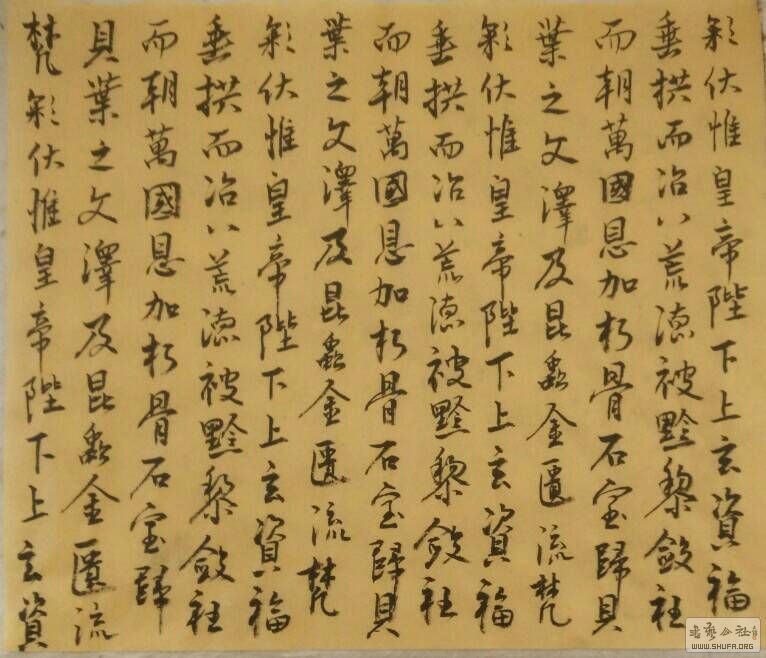 彩伏惟皇帝陛下上玄資福
垂拱而治八荒德被黔黎斂衽
而朝萬國恩加朽骨石室歸貝
葉之文澤及昆蟲金匱流梵
彩伏惟皇帝陛下上玄資福
垂拱而治八荒德被黔黎斂衽
而朝萬國恩加朽骨石室歸貝
葉之文澤及昆蟲金匱流梵
彩伏惟皇帝陛下上玄資福
垂拱而治八荒德被黔黎斂衽
而朝萬國恩加朽骨石室歸
貝葉之文澤及昆蟲金匱流
梵彩伏惟皇帝陛下上玄資
書藝公社
WWW.SHUFA.ORG